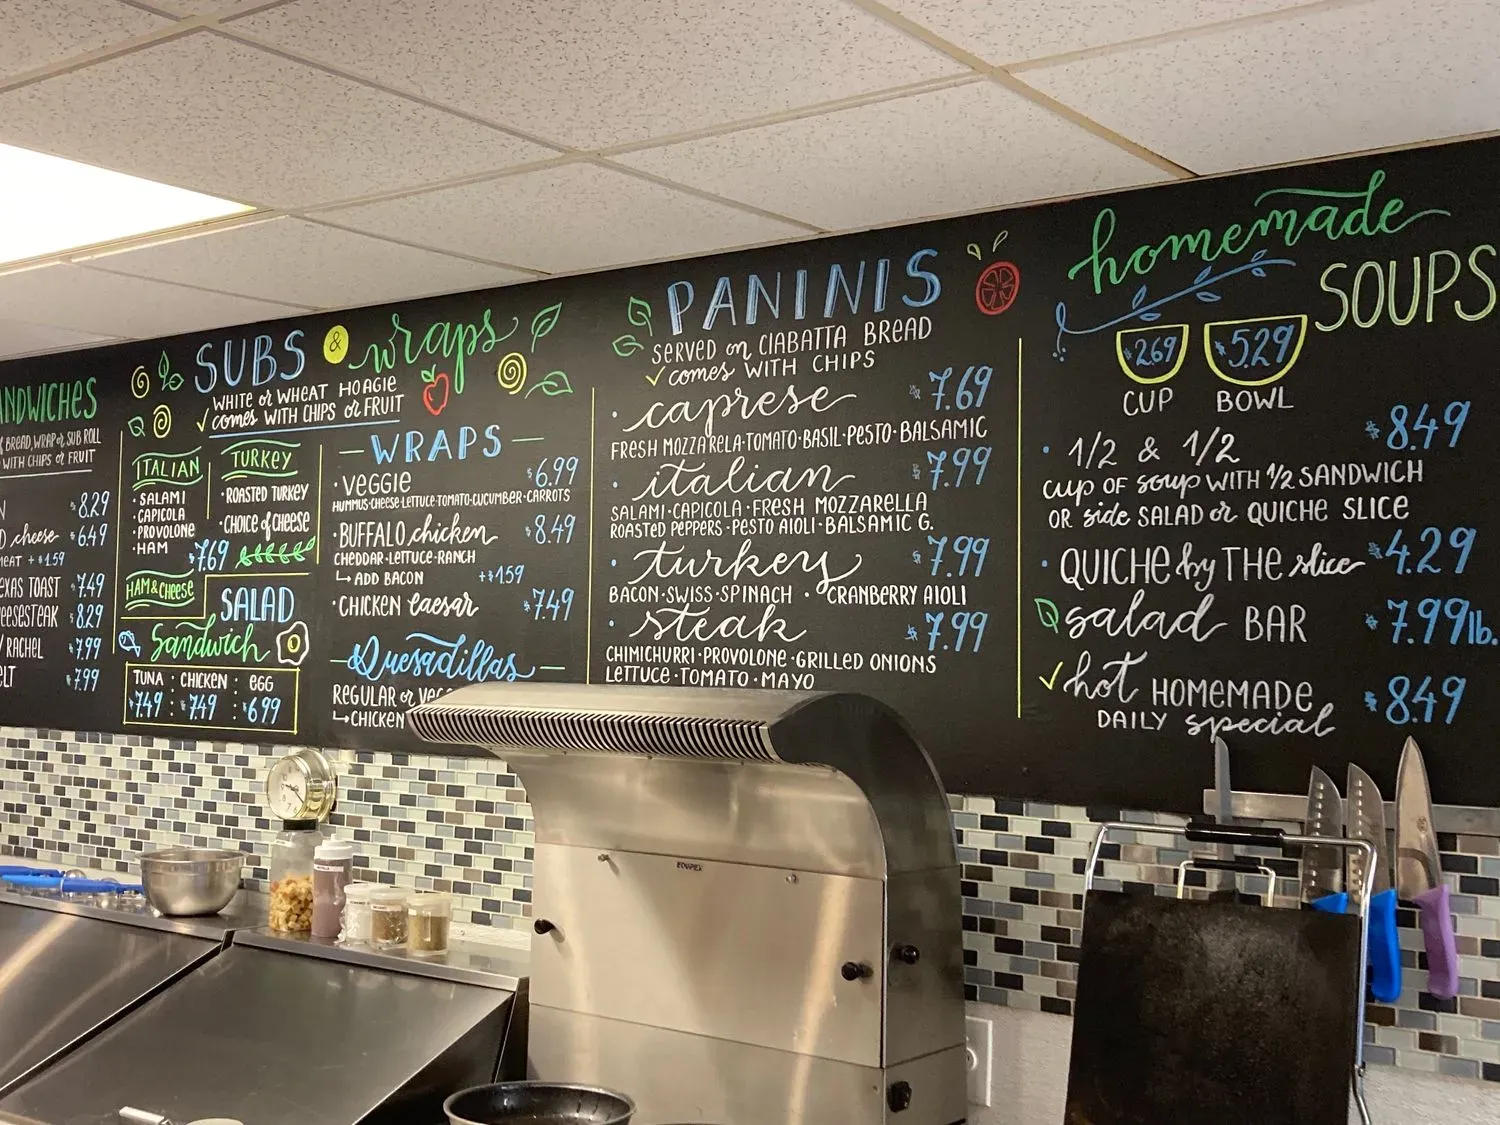 SUBS & wraps
WHITE or WHEAT HOAGIE
✓ comes WITH CHIPS or FRUIT
NDWICHES
BREAD, WRAP or SUB ROLL
WITH CHIPS or FRUIT
$8.29
cheese $6.49
+$1.59
EXAS TOAST $7.49
EESESTEAK $8.29
/ RACHEL $7.99
ELT $7.99
ITALIAN
· SALAMI
· CAPICOLA
· PROVOLONE
· HAM
TURKEY
· ROASTED TURKEY
· CHOICE of CHEESE
$7.69
HAM & CHEESE
SALAD
Sandwich
TUNA : CHICKEN : EGG
$7.49 : $7.49 : $6.99
— WRAPS —
· VEGGIE $6.99
HUMMUS·CHEESE·LETTUCE·TOMATO·CUCUMBER·CARROTS
· BUFFALO chicken $8.49
CHEDDAR·LETTUCE·RANCH
↳ ADD BACON +$1.59
· CHICKEN caesar $7.49
— Quesadillas —
REGULAR or
↳ CHICKEN
PANINIS
SERVED on CIABATTA BREAD
✓ comes WITH CHIPS
· caprese $7.69
FRESH MOZZARELLA·TOMATO·BASIL·PESTO·BALSAMIC
· italian $7.99
SALAMI·CAPICOLA·FRESH MOZZARELLA
ROASTED PEPPERS·PESTO AIOLI·BALSAMIC G.
· turkey $7.99
BACON·SWISS·SPINACH · CRANBERRY AIOLI
· steak $7.99
CHIMICHURRI·PROVOLONE·GRILLED ONIONS
LETTUCE·TOMATO·MAYO
homemade
SOUPS
$2.69 $5.29
CUP BOWL
· 1/2 & 1/2 $8.49
cup OF soup WITH 1/2 SANDWICH
OR side SALAD or QUICHE SLICE
· QUICHE by THE slice $4.29
salad BAR $7.99 lb.
✓ hot HOMEMADE $8.49
DAILY special